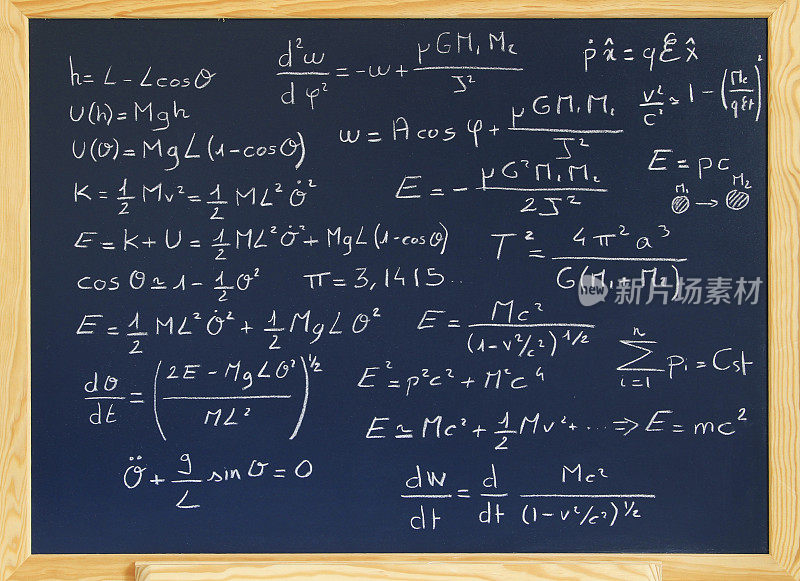 h = L - L cos θ
U(h) = Mgh
U(θ) = MgL(1 - cos θ)
K = 1/2 Mv² = 1/2 ML² θ̇²
E = K + U = 1/2 ML² θ̇² + MgL(1 - cos θ)
cos θ ≃ 1 - 1/2 θ²
π = 3,1415...
E = 1/2 ML² θ̇² + 1/2 MgL θ²
dθ/dt = ((2E - MgLθ²)/ML²)^1/2
θ̈ + g/L sin θ = 0
d²w/dφ² = -w + μGM₁M₂/J²
w = A cos φ + μGM₁M₂/J²
E = - μG²M₁M₂/2J²
T² = 4π²a³/G(M₁+M₂)
E = Mc²/(1-v²/c²)^1/2
E² = p²c² + M²c⁴
E ≃ Mc² + 1/2 Mv² + ... ⇒ E = mc²
dW/dt = d/dt Mc²/(1-v²/c²)^1/2
ṗ x̂ = qℰ x̂
v²/c² ≃ 1 - (Mc/qℰt)²
E = pc
M₁ → M₂
n
Σ pᵢ = Cst
i=1
new 新片场素材